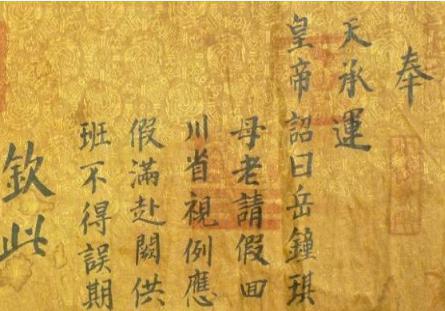 奉
天承運
皇帝詔曰岳鐘琪
母老請假回
川省視例應
假滿赴闕供
班不得誤期
欽此